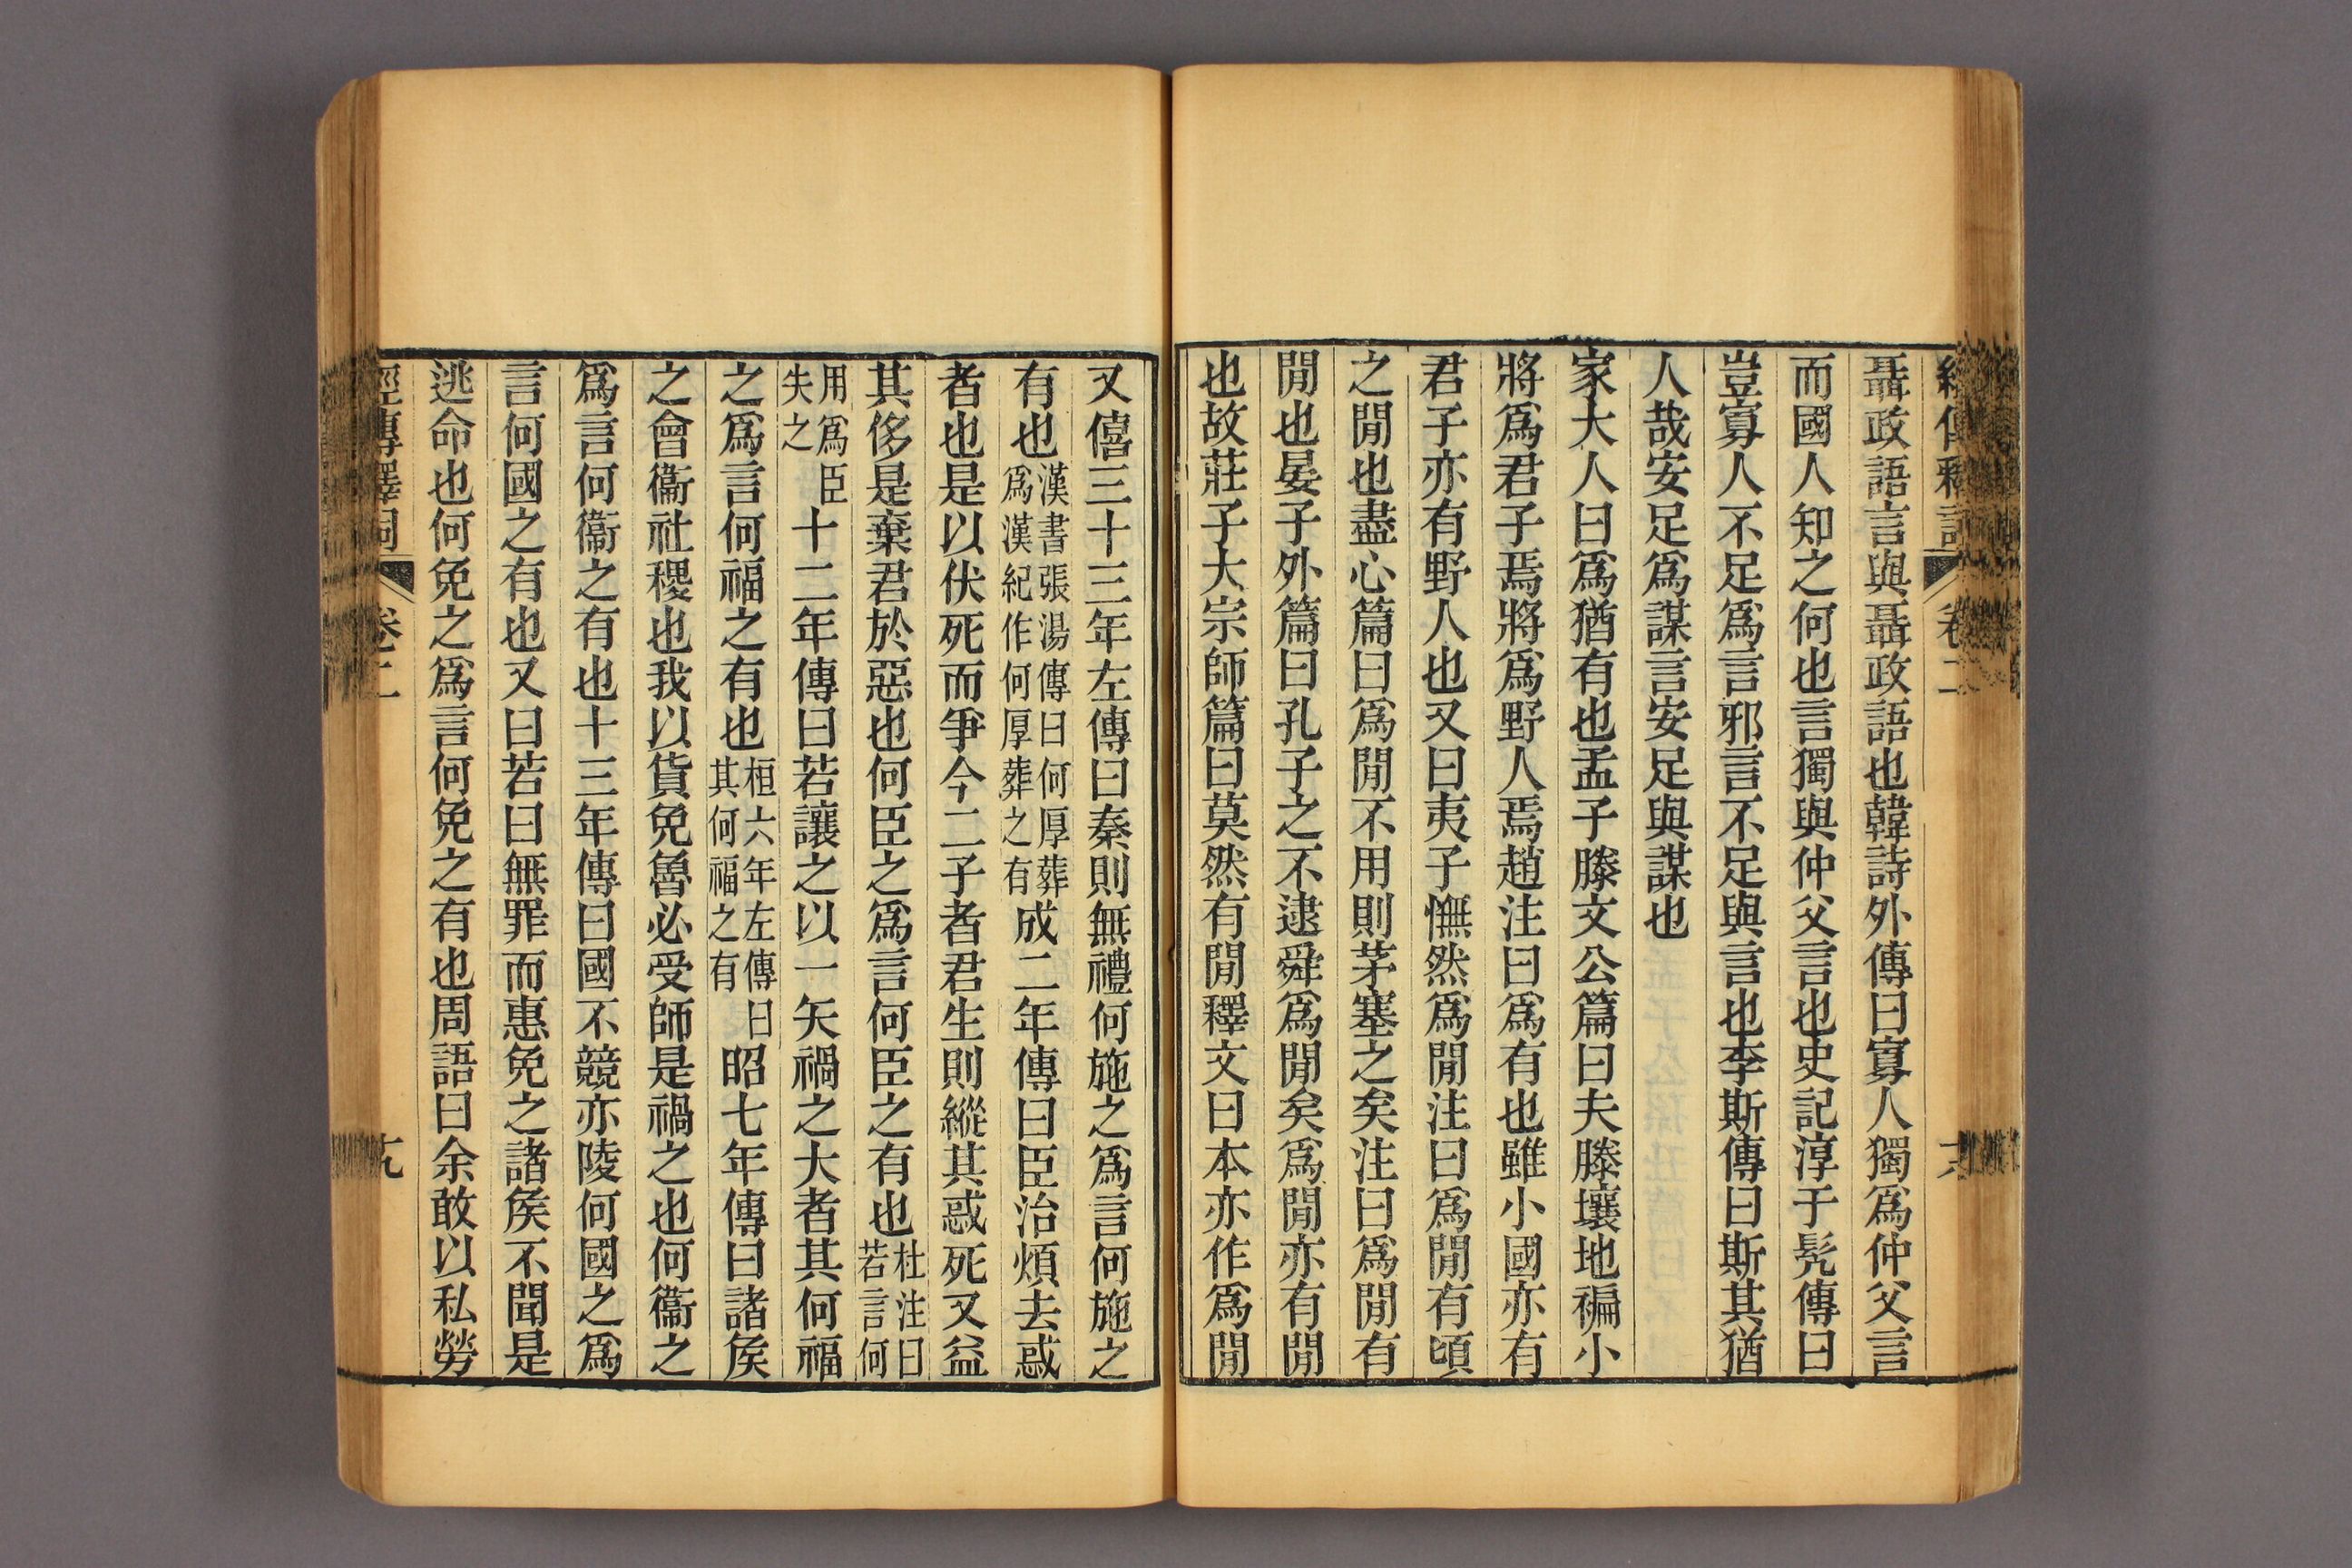 經傳釋詞 卷二 十八
聶政語言與聶政語也韓詩外傳曰寡人獨爲仲父言
而國人知之何也言獨與仲父言也史記淳于髡傳曰
豈寡人不足爲言邪言不足與言也李斯傳曰斯其猶
人哉安足爲謀言安足與謀也
家大人曰爲猶有也孟子滕文公篇曰夫滕壤地褊小
將爲君子焉將爲野人焉趙注曰爲有也雖小國亦有
君子亦有野人也又曰夷子憮然爲閒注曰爲閒有頃
之閒也盡心篇曰爲閒不用則茅塞之矣注曰爲閒有
閒也晏子外篇曰孔子之不逮舜爲閒矣爲閒亦有閒
也故莊子大宗師篇曰莫然有閒釋文曰本亦作爲閒
又僖三十三年左傳曰秦則無禮何施之爲言何施之
有也漢書張湯傳曰何厚葬爲漢紀作何厚葬之有成二年傳曰臣治煩去惑
者也是以伏死而爭今二子者君生則縱其惑死又益
其侈是棄君於惡也何臣之爲言何臣之有也杜注曰若言何
用爲臣失之十二年傳曰若讓之以一矢禍之大者其何福
之爲言何福之有也桓六年左傳曰其何福之有昭七年傳曰諸矦
之會衞社稷也我以貨免魯必受師是禍之也何衞之
爲言何衞之有也十三年傳曰國不競亦陵何國之爲
言何國之有也又曰若曰無罪而惠免之諸矦不聞是
逃命也何免之爲言何免之有也周語曰余敢以私勞
經傳釋詞 卷二 十九